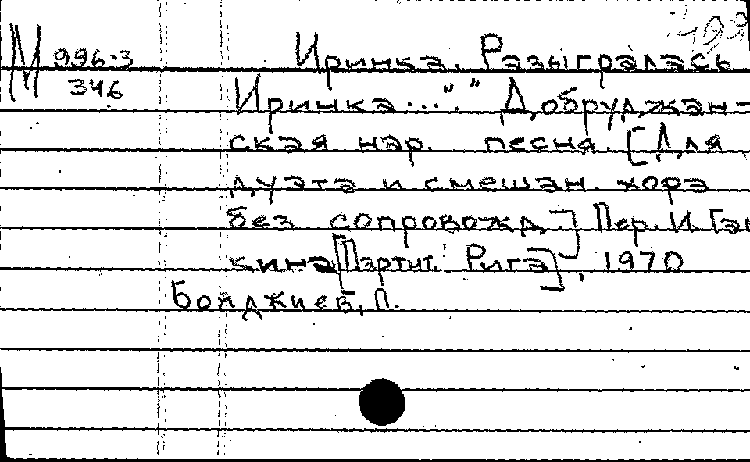 М 996-3
346
Иринка. Разыгралась
Иринка...". " Добруджан-
ская нар. песня. [Для
дуэта и смешан. хора
без сопровожд.] Пер. И. Ган
кина [Партит. Рига], 1970
Бояджиев, П.